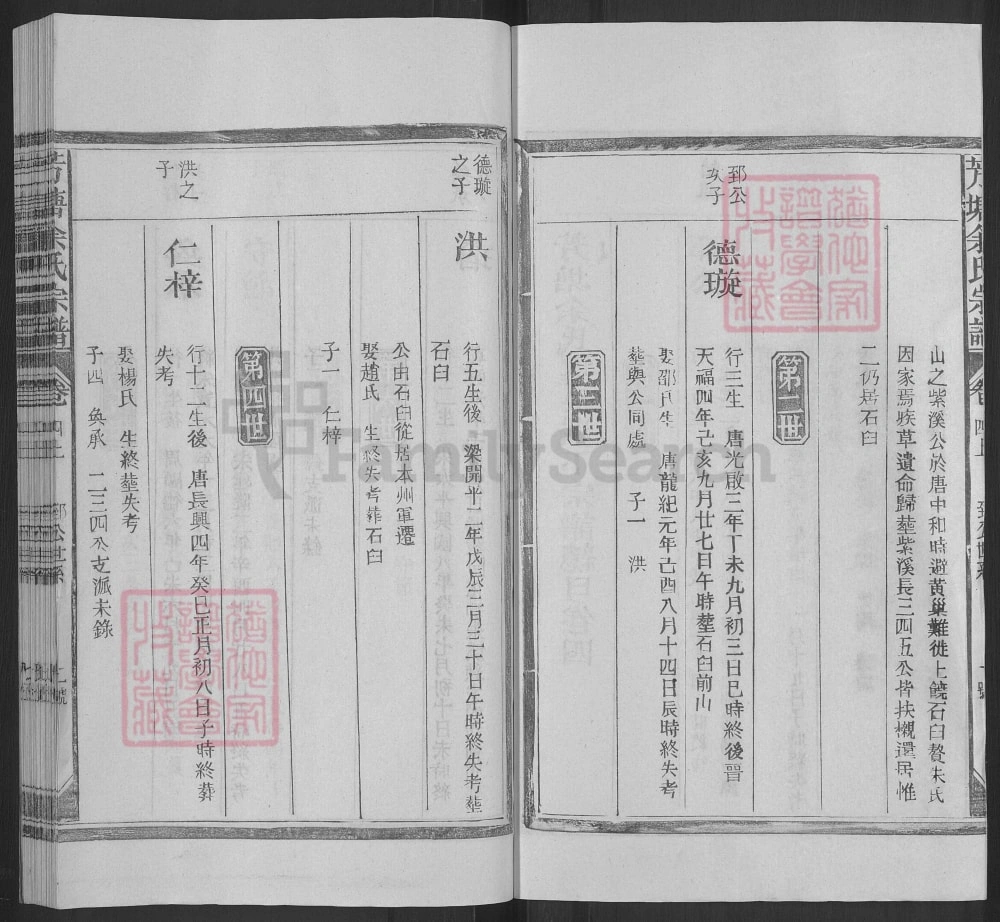 山之紫溪公於唐中和時避黃巢難徙上饒石臼贅朱氏
因家焉疾草遺命歸塟紫溪長三四五公皆扶櫬還居惟
二仍居石臼
第二世
郅公
次子
德璇
行三生 唐光啟三年丁未九月初三日巳時終後晉
天福四年己亥九月廿七日午時塟石臼前山
娶邵氏生 唐龍紀元年己酉八月十四日辰時終失考
塟與公同處 子一 洪
第三世
德璇
之子
洪
行五生後 梁開平二年戊辰三月三十日午時終失考塟
石臼
公由石臼從居本州軍遷
娶趙氏 生終失考葬石臼
子一 仁梓
第四世
洪之
子
仁梓
行十二生後 唐長興四年癸巳正月初八日子時終葬
失考
娶楊氏 生終塟失考
子四 奐承 二三四公支派未錄
余氏宗譜
卷 四上 郅公世系
FamilySearch